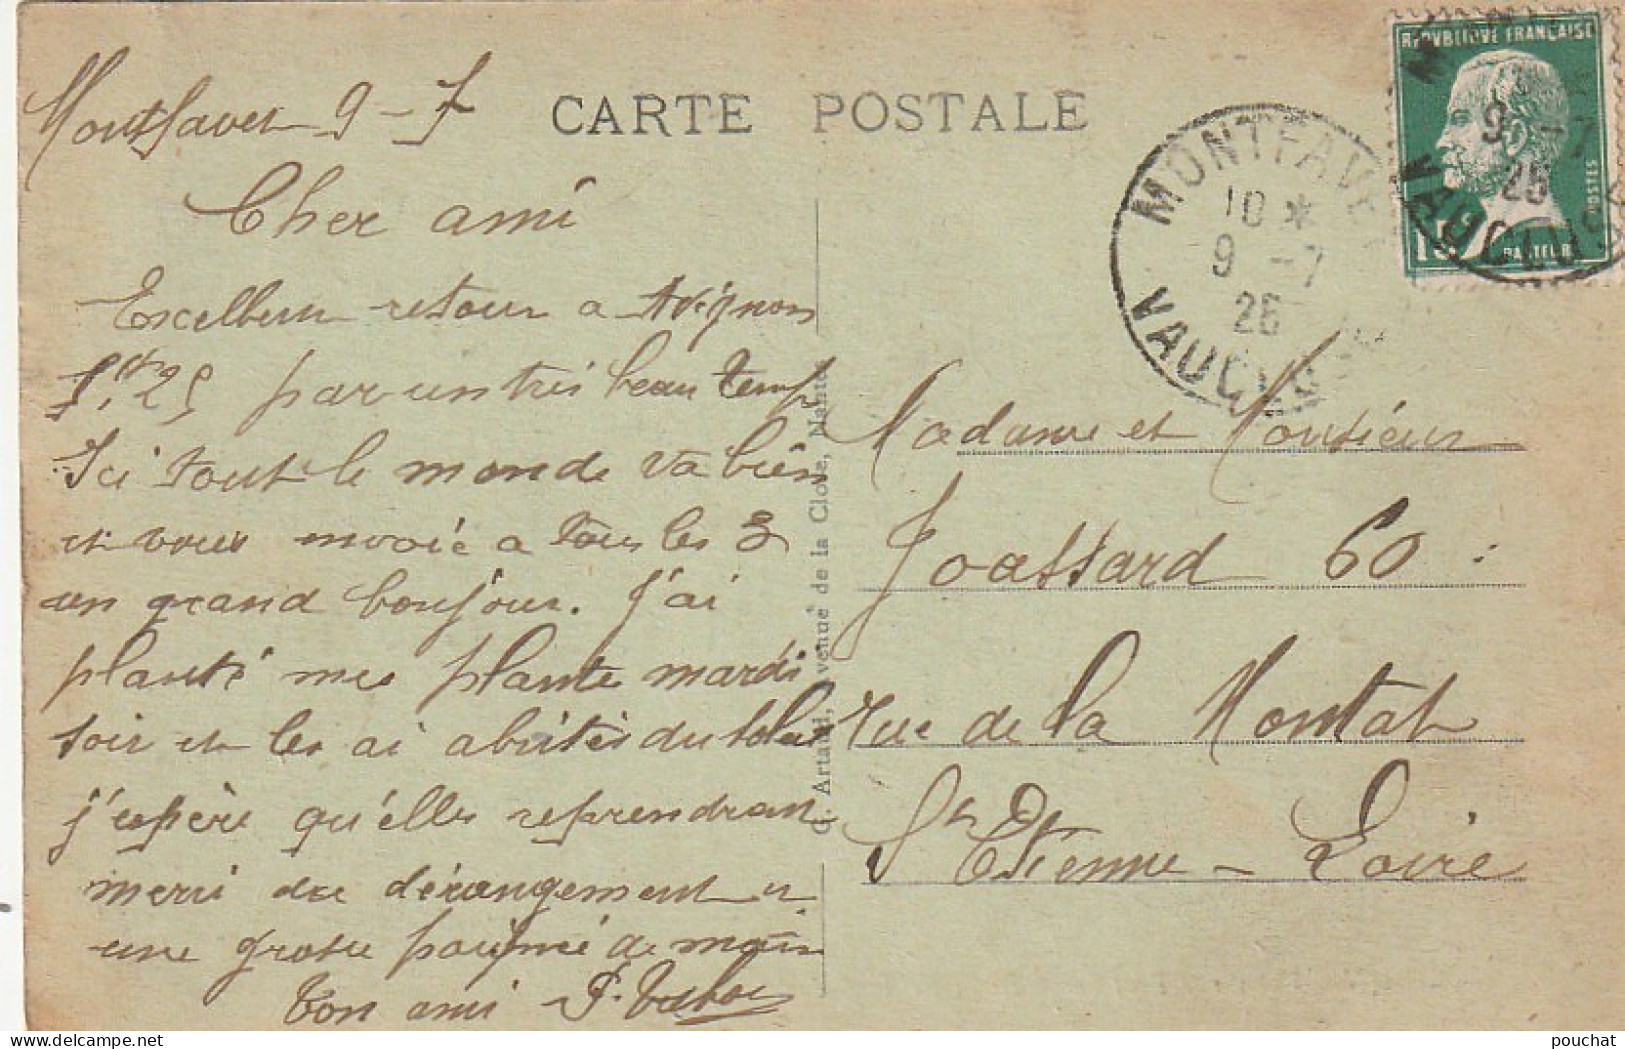 CARTE POSTALE
Montfavet 9-7
Cher ami
Excellent retour a Avignon
par un très beau temp
Ici tout le monde va bien
et vous envoie a tous les 3
un grand boujour. J'ai
planté mes plante mardi
soir et les ai abrités du soleil
j'espère qu'elles reprendron
merci du dérangement et
une grosse poignée de main
Ton ami
G. Artaud, avenue de la Close, Nantes
MONTFAVET
10 *
9 -7
26
VAUCLUSE
REPUBLIQUE FRANÇAISE
POSTES
15c
PASTEUR
9 -7
26
VAUCLUSE
Madame et Monsieur
Joassard 60
rue de la Montat
St Etienne - Loire
pouchat